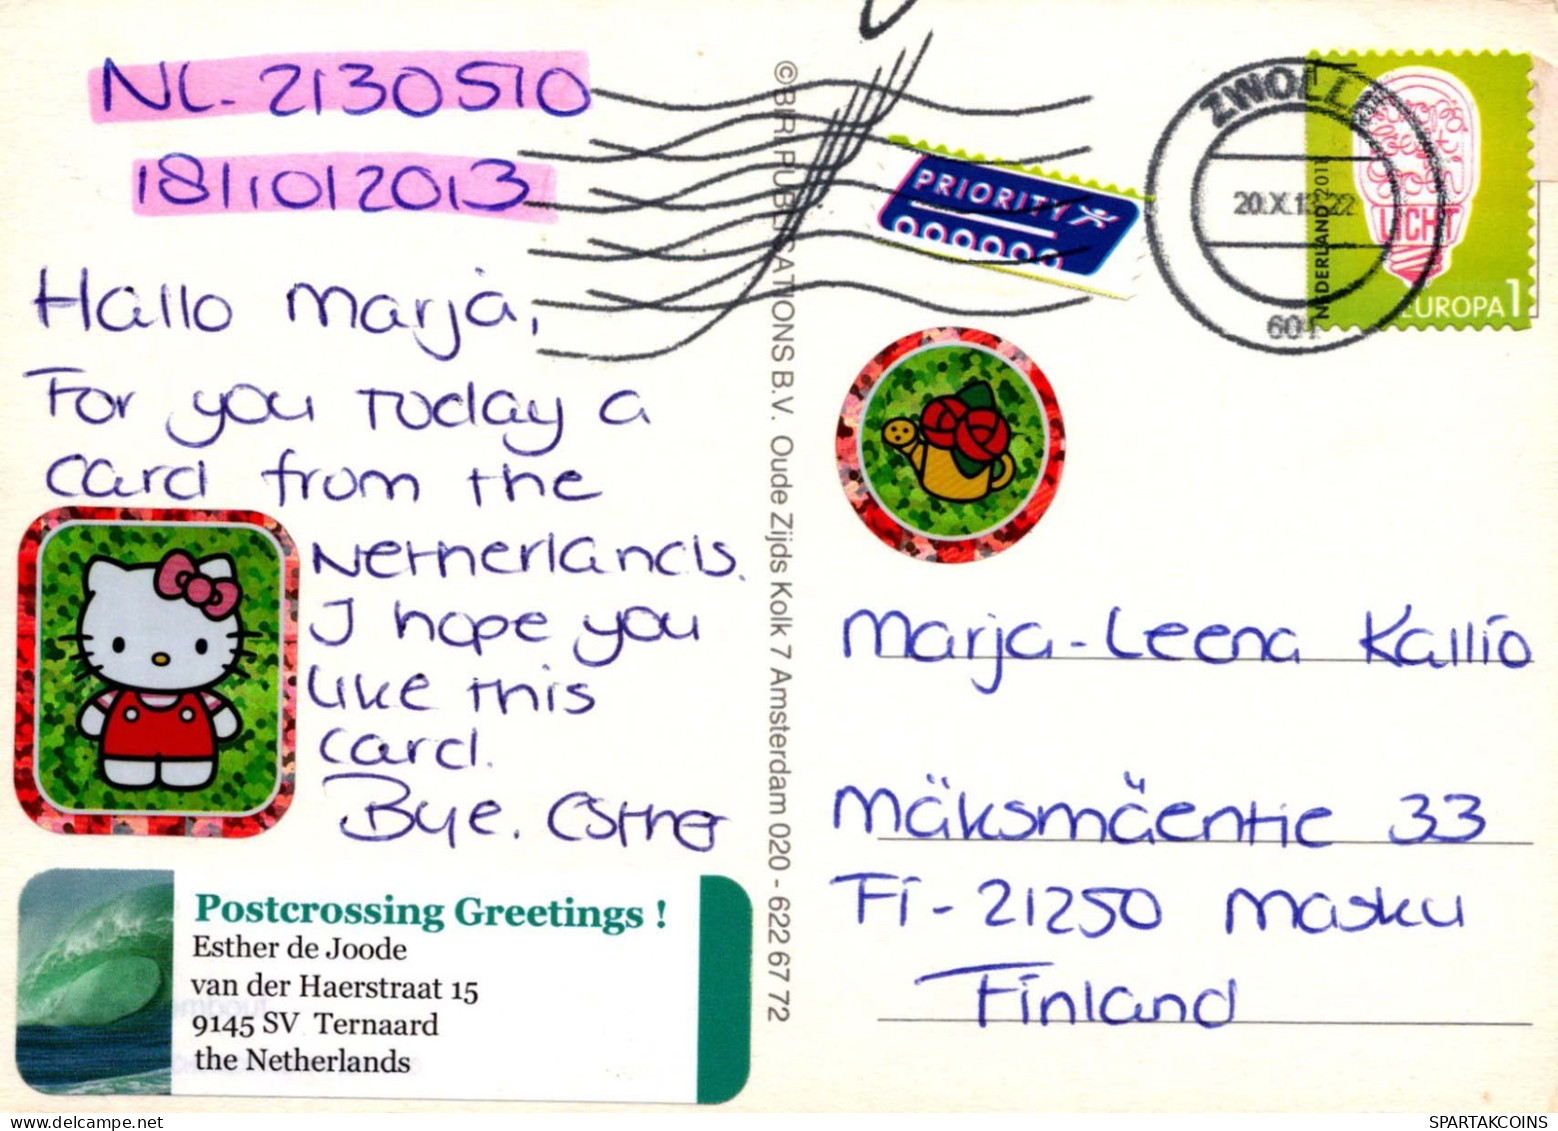 NL-2130510
18/10/2013
Hallo Marja,
For you today a
card from the
Netherlands.
I hope you
like this
card.
Bye. Esther
Postcrossing Greetings !
Esther de Joode
van der Haerstraat 15
9145 SV Ternaard
the Netherlands
©BIRI PUBLICATIONS B.V. Oude Zijds Kolk 7 Amsterdam 020 - 622 67 72
PRIORITY
ZWOLLE
20.X.13
601
NEDERLAND 2011
LICHT
EUROPA 1
Marja-Leena Kallio
Mäksmäentie 33
Fi-21250 Masku
Finland
SPARTAKCOINS